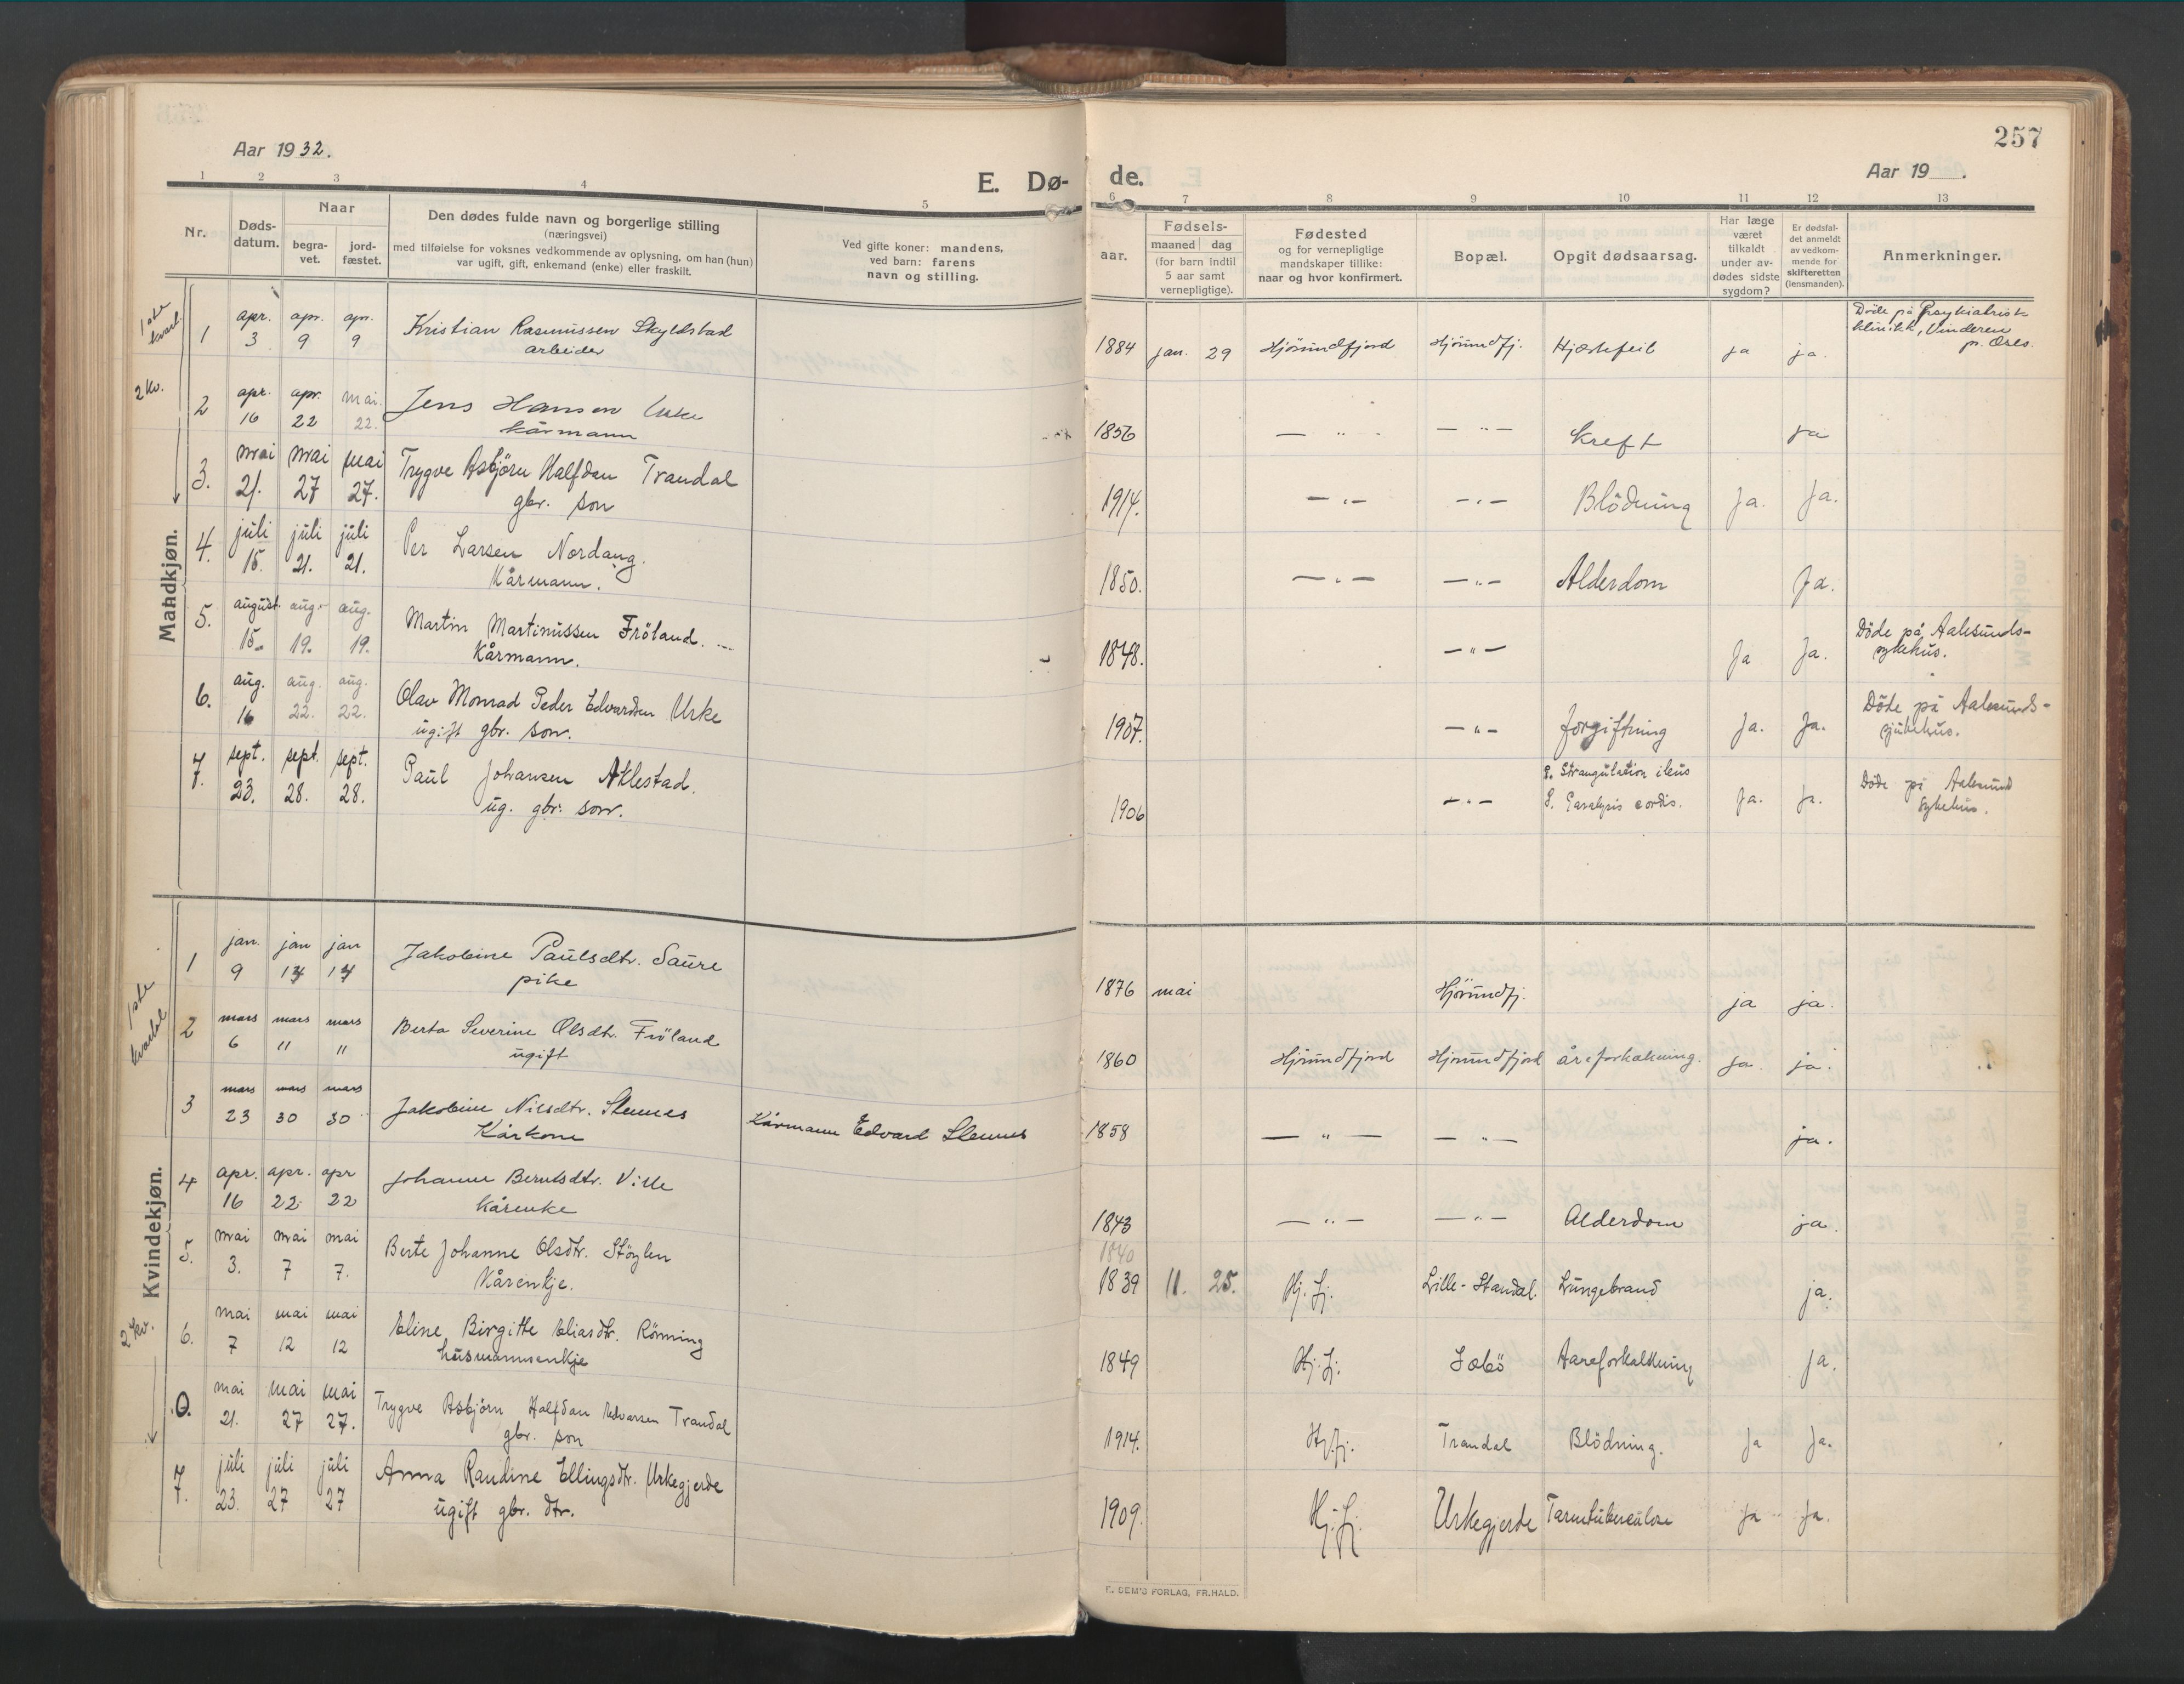 257
Aar 1932.
Aar 19 .
E. Dø-
de.
1 2 3 4 5 6 7 8 9 10 11 12 13
Nr.
Døds-
datum.
Naar
begra-
vet.
jord-
fæstet.
Den dødes fulde navn og borgerlige stilling
(næringsvei)
med tilføielse for voksnes vedkommende av oplysning, om han (hun)
var ugift, gift, enkemand (enke) eller fraskilt.
Ved gifte koner: mandens,
ved barn: farens
navn og stilling.
aar.
Fødsels-
maaned dag
(for barn indtil
5 aar samt
vernepligtige).
Fødested
og for vernepligtige
mandskaper tillike:
naar og hvor konfirmert.
Bopæl.
Opgit dødsaarsag.
Har læge
været
tilkaldt
under av-
dødes sidste
sygdom?
Er dødsfal-
det anmeldt
av vedkom-
mende for
skifteretten
(lensmanden).
Anmerkninger.
Mandkjøn.
1ste
kvart.
1 apr. 3 apr. 9 apr. 9 Kristian Rasmussen Skylstad 1884 jan. 29 Hjörundfjord Hjörundfj. Hjertefeil ja ja.
arbeider
Döde på Psykiatrisk
klinikk, Vinderen
pr. Oslo.
2 kv.
2 apr. 16 apr. 22 mai. 22. Jens Hansen Urke 1856 — " - — " — Kreft ja
kårmann
3. mai 21. mai 27 mai 27. Trygve Asbjörn Halfdan Trandal 1914. — " — — " — Blödning Ja. Ja.
gbr. son
4. juli 15. juli 21. juli 21. Per Larsen Nordang. 1850. — " — — " — Alderdom Ja.
Kårmann.
5. august. 15. aug. 19. aug. 19. Martin Martinussen Fröland. 1848. — " — Ja Ja.
Kårmann.
Döde på Aalesunds-
sykehus.
6. aug. 16 aug. 22. aug. 22. Olav Monrad Peder Edvardsen Urke 1907. — " — forgiftning Ja. Ja.
ugift gbr. son.
Döde på Aalesunds-
sjukehus.
7. sept. 23. sept. 28. sept. 28. Paul Johansen Aklestad. 1906 — " — Strangulation ileus
ug. gbr. son.
Paralysis cordis. Ja. Ja.
Döde på Aalesund
Sykehus.
Kvindekjøn.
1ste
kvartal
1 jan. 9 jan 14 jan 14 Jakobine Paulsdtr. Saure 1876 mai Hjörundfj. ja ja.
pike
2 mars 6 mars 11 mars 11 Berta Severine Olsdtr. Fröland 1860 Hjörundfjord Hjorundfjord åreforkalkning. ja. ja.
ugift
3 mars 23 mars 30 mars 30 Jakobine Nilsdtr. Slemnes Kårmann Edvard Slemnes 1858 — " — — " — ja.
Kårkone
4 apr. 16 apr. 22 apr 22 Johanne Berntsdtr. Ville 1843 — " — — " — Alderdom ja.
kårenke
1840
5. mai 3. mai 7 mai 7. Berte Johanne Olsdtr. Stöylen 1839 11. 25. Hj. fj. Lille-Standal. Lungebrand ja.
Kårenkje.
2 kv.
6. mai 7 mai 12 mai 12 Eline Birgitte Eliasdtr. Rönning 1849 Hj. fj. Sæbö Aareforkalkning ja.
husmannsenkje
0. mai 21. mai 27 mai 27. Trygve Asbjörn Halfdan Edvarsen Trandal 1914. Hj.fj. Trandal Blödning. Ja Ja.
gbr. son
7. juli 23. juli 27 juli 27 Anna Raudine Ellingsdtr. Urkegjerde 1909. Hj. fj. Urkegjerde Tarmtuberculose Ja Ja.
ugift gbr. dtr.
E. SEM'S FORLAG, FR.HALD.